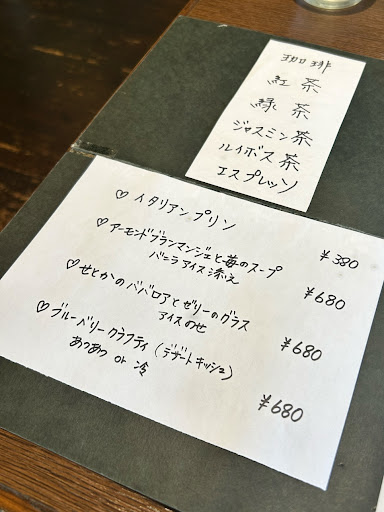 珈琲
紅茶
緑茶
ジャスミン茶
ルイボス茶
エスプレッソ
♡イタリアンプリン ¥380
♡アーモンドブランマンジェと苺のスープ
バニラアイス添え ¥680
♡せとかのババロアとゼリーのグラス
アイスのせ ¥680
♡ブルーベリークラフティ(デザートキッシュ)
あつあつ or 冷 ¥680